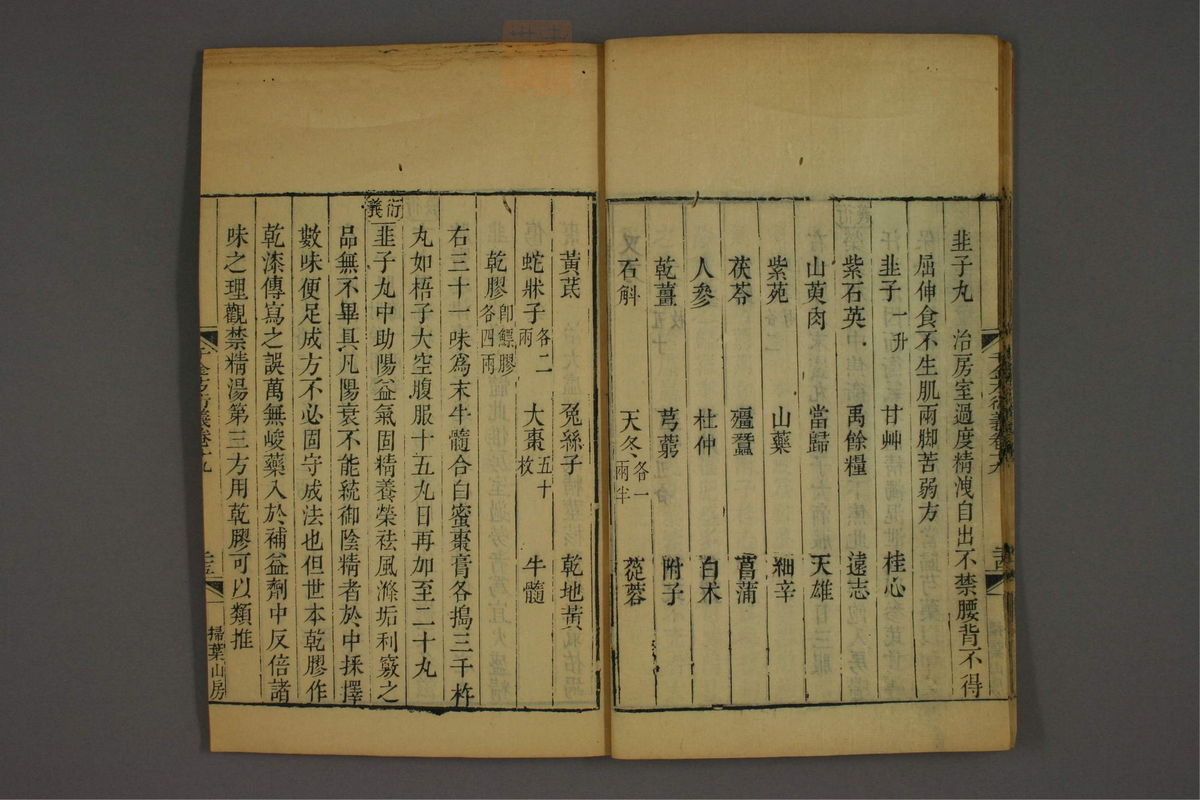 韭子丸　治房室過度精洩自出不禁腰背不得
屈伸食不生肌兩脚苦弱方
韭子一升　甘艸　桂心
紫石英　禹餘糧　遠志
山萸肉　當歸　天雄
紫苑　山藥　細辛
茯苓　殭蠶　菖蒲
人參　杜仲　白朮
乾薑　芎藭　附子
石斛　天冬各一兩半　蓯蓉
黃芪　兔絲子　乾地黃
蛇牀子各二兩　大棗五十枚　牛髓
乾膠卽鰾膠各四兩
右三十一味爲末牛髓合白蜜棗膏各搗三千杵
丸如梧子大空腹服十五丸日再加至二十丸
衍義
韭子丸中助陽益氣固精養榮祛風滌垢利竅之
品無不畢具凡陽衰不能統御陰精者於中揉擇
數味便足成方不必固守成法也但世本乾膠作
乾漆傳寫之誤萬無峻藥入於補益劑中反倍諸
味之理觀禁精湯第三方用乾膠可以類推
千金方衍義卷十九
掃葉山房